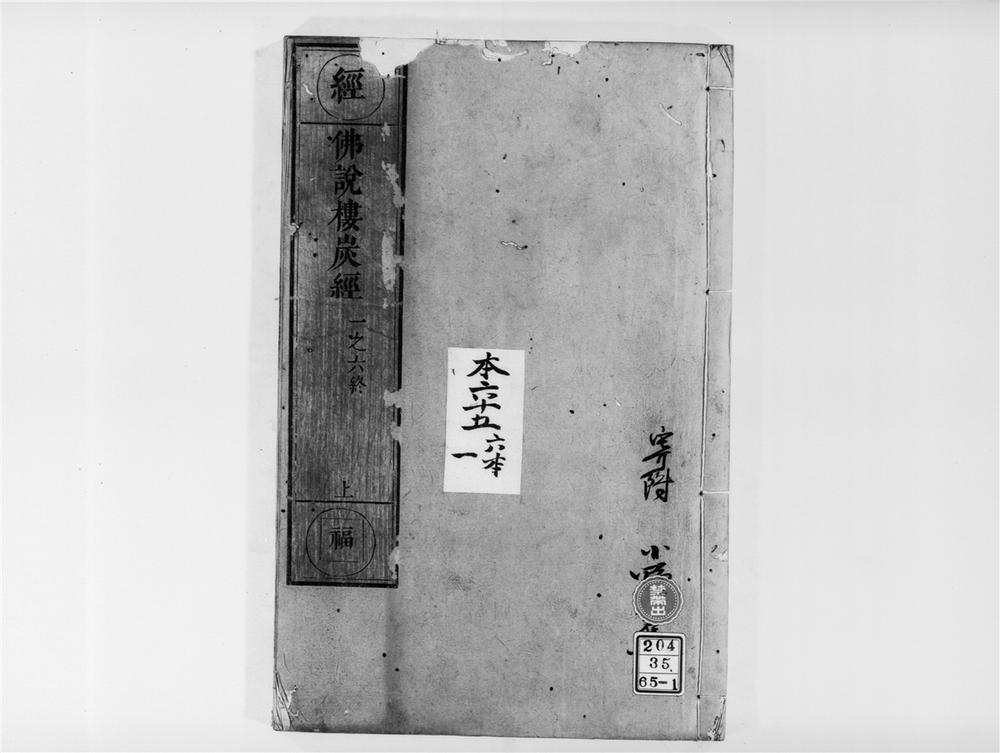 經
佛說樓炭經
一之六終
上
福
本六十五
六本
一
寄附
小
禁帶出
204
35.
65-1